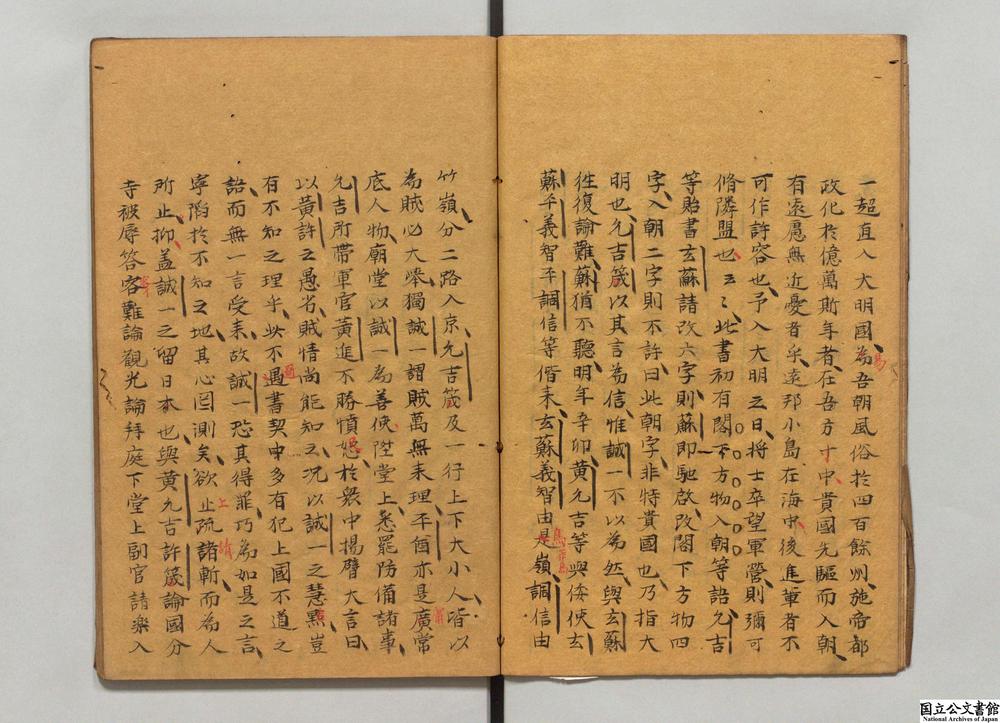 一超直入大明國為吾朝風俗於四百餘州施帝都
政化於億萬斯年者在吾方寸中貴國先驅而入朝
有遠慮無近憂者乎遠邦小島在海中後進輩者不
可作許容也予入大明之日將士卒望軍營則彌可
脩隣盟也云々此書初有閤下方物入朝等語允吉
等貽書玄蘇請改六字則蘇即馳啟改閤下方物四
字入朝二字則不許曰此朝字非特貴國也乃指大
明也允吉筬以其言為信惟誠一不以為然與玄蘇
徃復論難蘇猶不聽明年辛卯黄允吉等與倭使玄
蘇平義智平調信等偕来玄蘇義智由是嶺調信由
竹嶺分二路入京允吉筬及一行上下大小人皆以
為賊必大举獨誠一謂賊萬無来理平酋亦是廣常
底人物廟堂以誠一為善使陞堂上悉罷防備諸事
允吉所帶軍官黄進不勝憤怒於衆中揚臂大言曰
以黄許之愚劣賊情尚能知之况以誠一之慧黠豈
有不知之理乎此不過書契中多有犯上國不道之
語而無一言受来故誠一恐其得罪巧為如是之言
寧陷於不知之地其心罔測矣欲止疏請斬而為人
所止抑盖誠一之留日本也與黄允吉許筬論國分
寺被辱答客難論觀光論拜庭下堂上副官請樂入
国立公文書館
National Archives of Japan